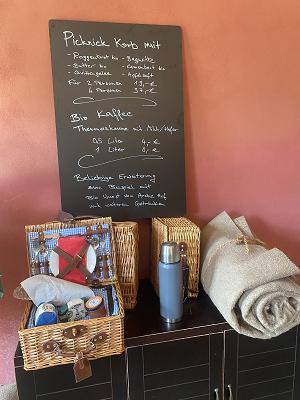 Picknick Korb mit
- Roggenbrot bio - Baguette
- Butter bio - Camembert bio
- Apfelsaft
Für 2 Personen 19,-€
4 Personen 37,-€
Bio Kaffee
Thermoskanne mit Milch/Hafer
0,5 Liter 4,-€
1 Liter
Beliebige Erweiterung
zum Beispiel mit
Bio Wurst von Arche Hof
und weiteren Getränken